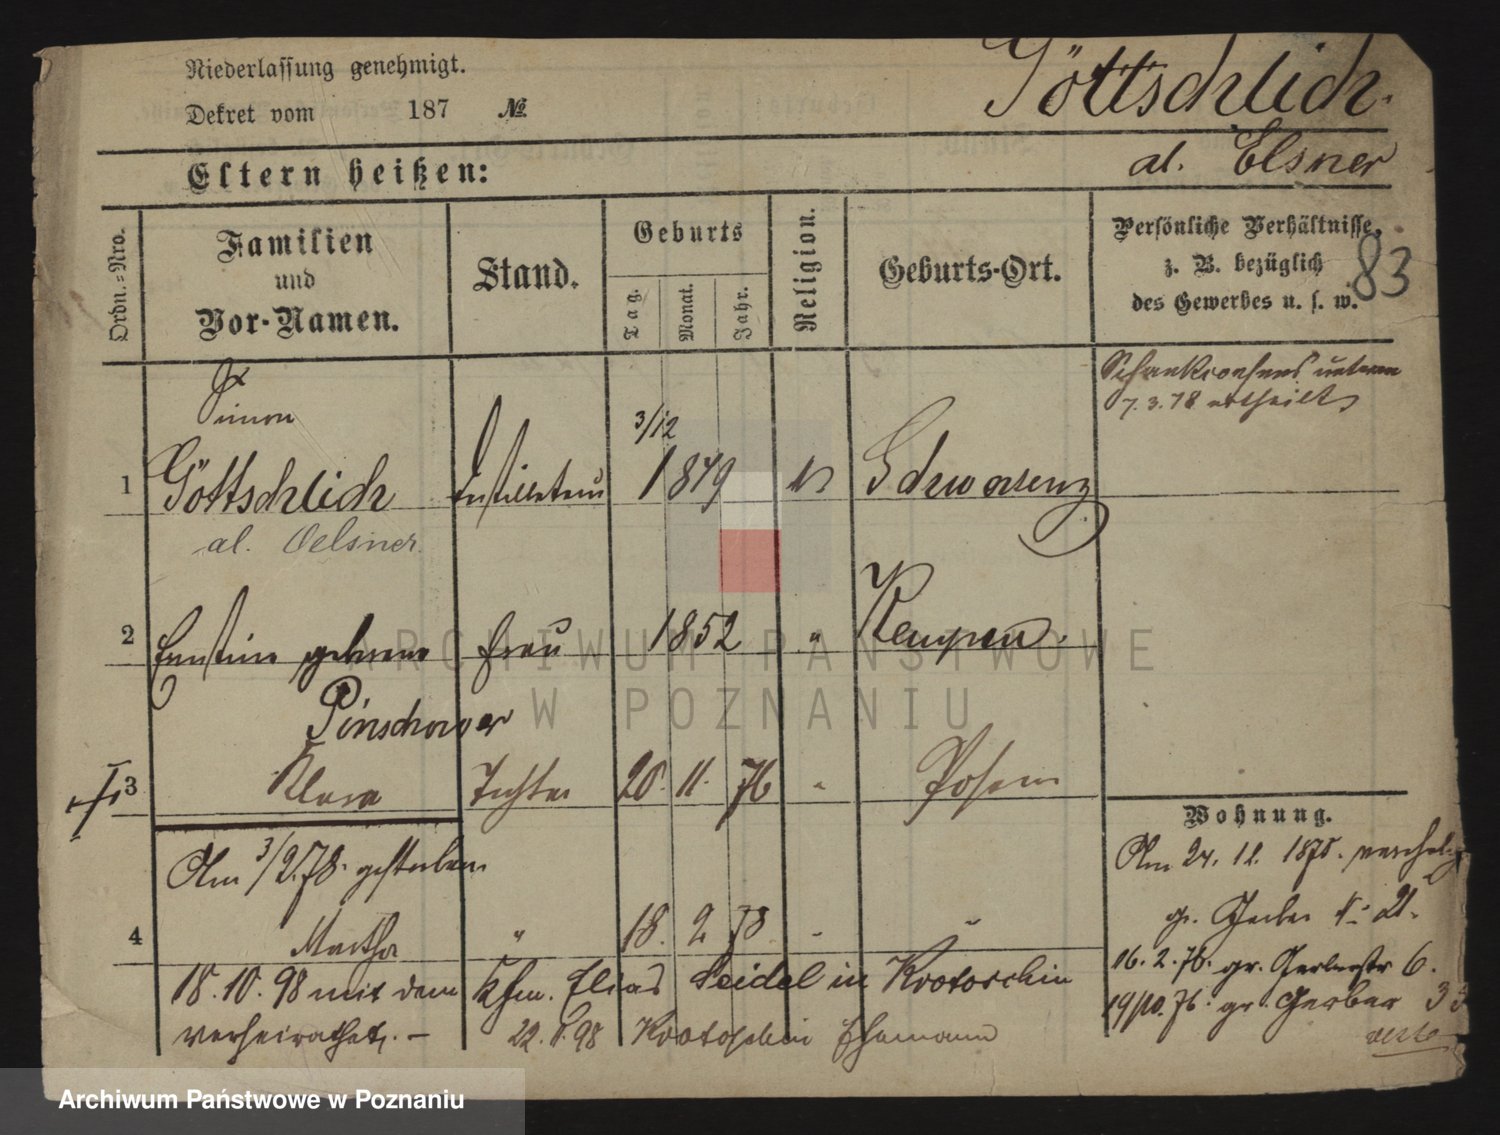 Niederlassung genehmigt.
Göttschlich.
Dekret vom 187 №
al. Elsner
Eltern heißen:
Ordn.=Nro.
Familien
und
Vor-Namen.
Stand.
Geburts
Tag.
Monat.
Jahr.
Religion.
Geburts-Ort.
Persönliche Verhältnisse,
z. B. bezüglich
des Gewerbes u. s. w.
83
7.3.78 ertheilt
Simon
3/12
1 Göttschlich 1849
al. Oelsner.
2 Ernstine geborene Frau 1852 " Kempen.
Pinschower
3 Klara Tochter 20. 11. 76 Posen
Wohnung.
Am 3/2.78. gestorben
Am 24. 12. 1875.
gr. Gerber
4 Martha " 18. 2 78
16. 2. 76. gr. Gerberstr 6.
18. 10. 98 mit dem Kfm. Elias Seidel in Krotoschin
19/10. 76. gr. Gerber
verheirathet. — 98 Krotoschin Ehemann
ARCHIWUM PAŃSTWOWE
W POZNANIU
Archiwum Państwowe w Poznaniu